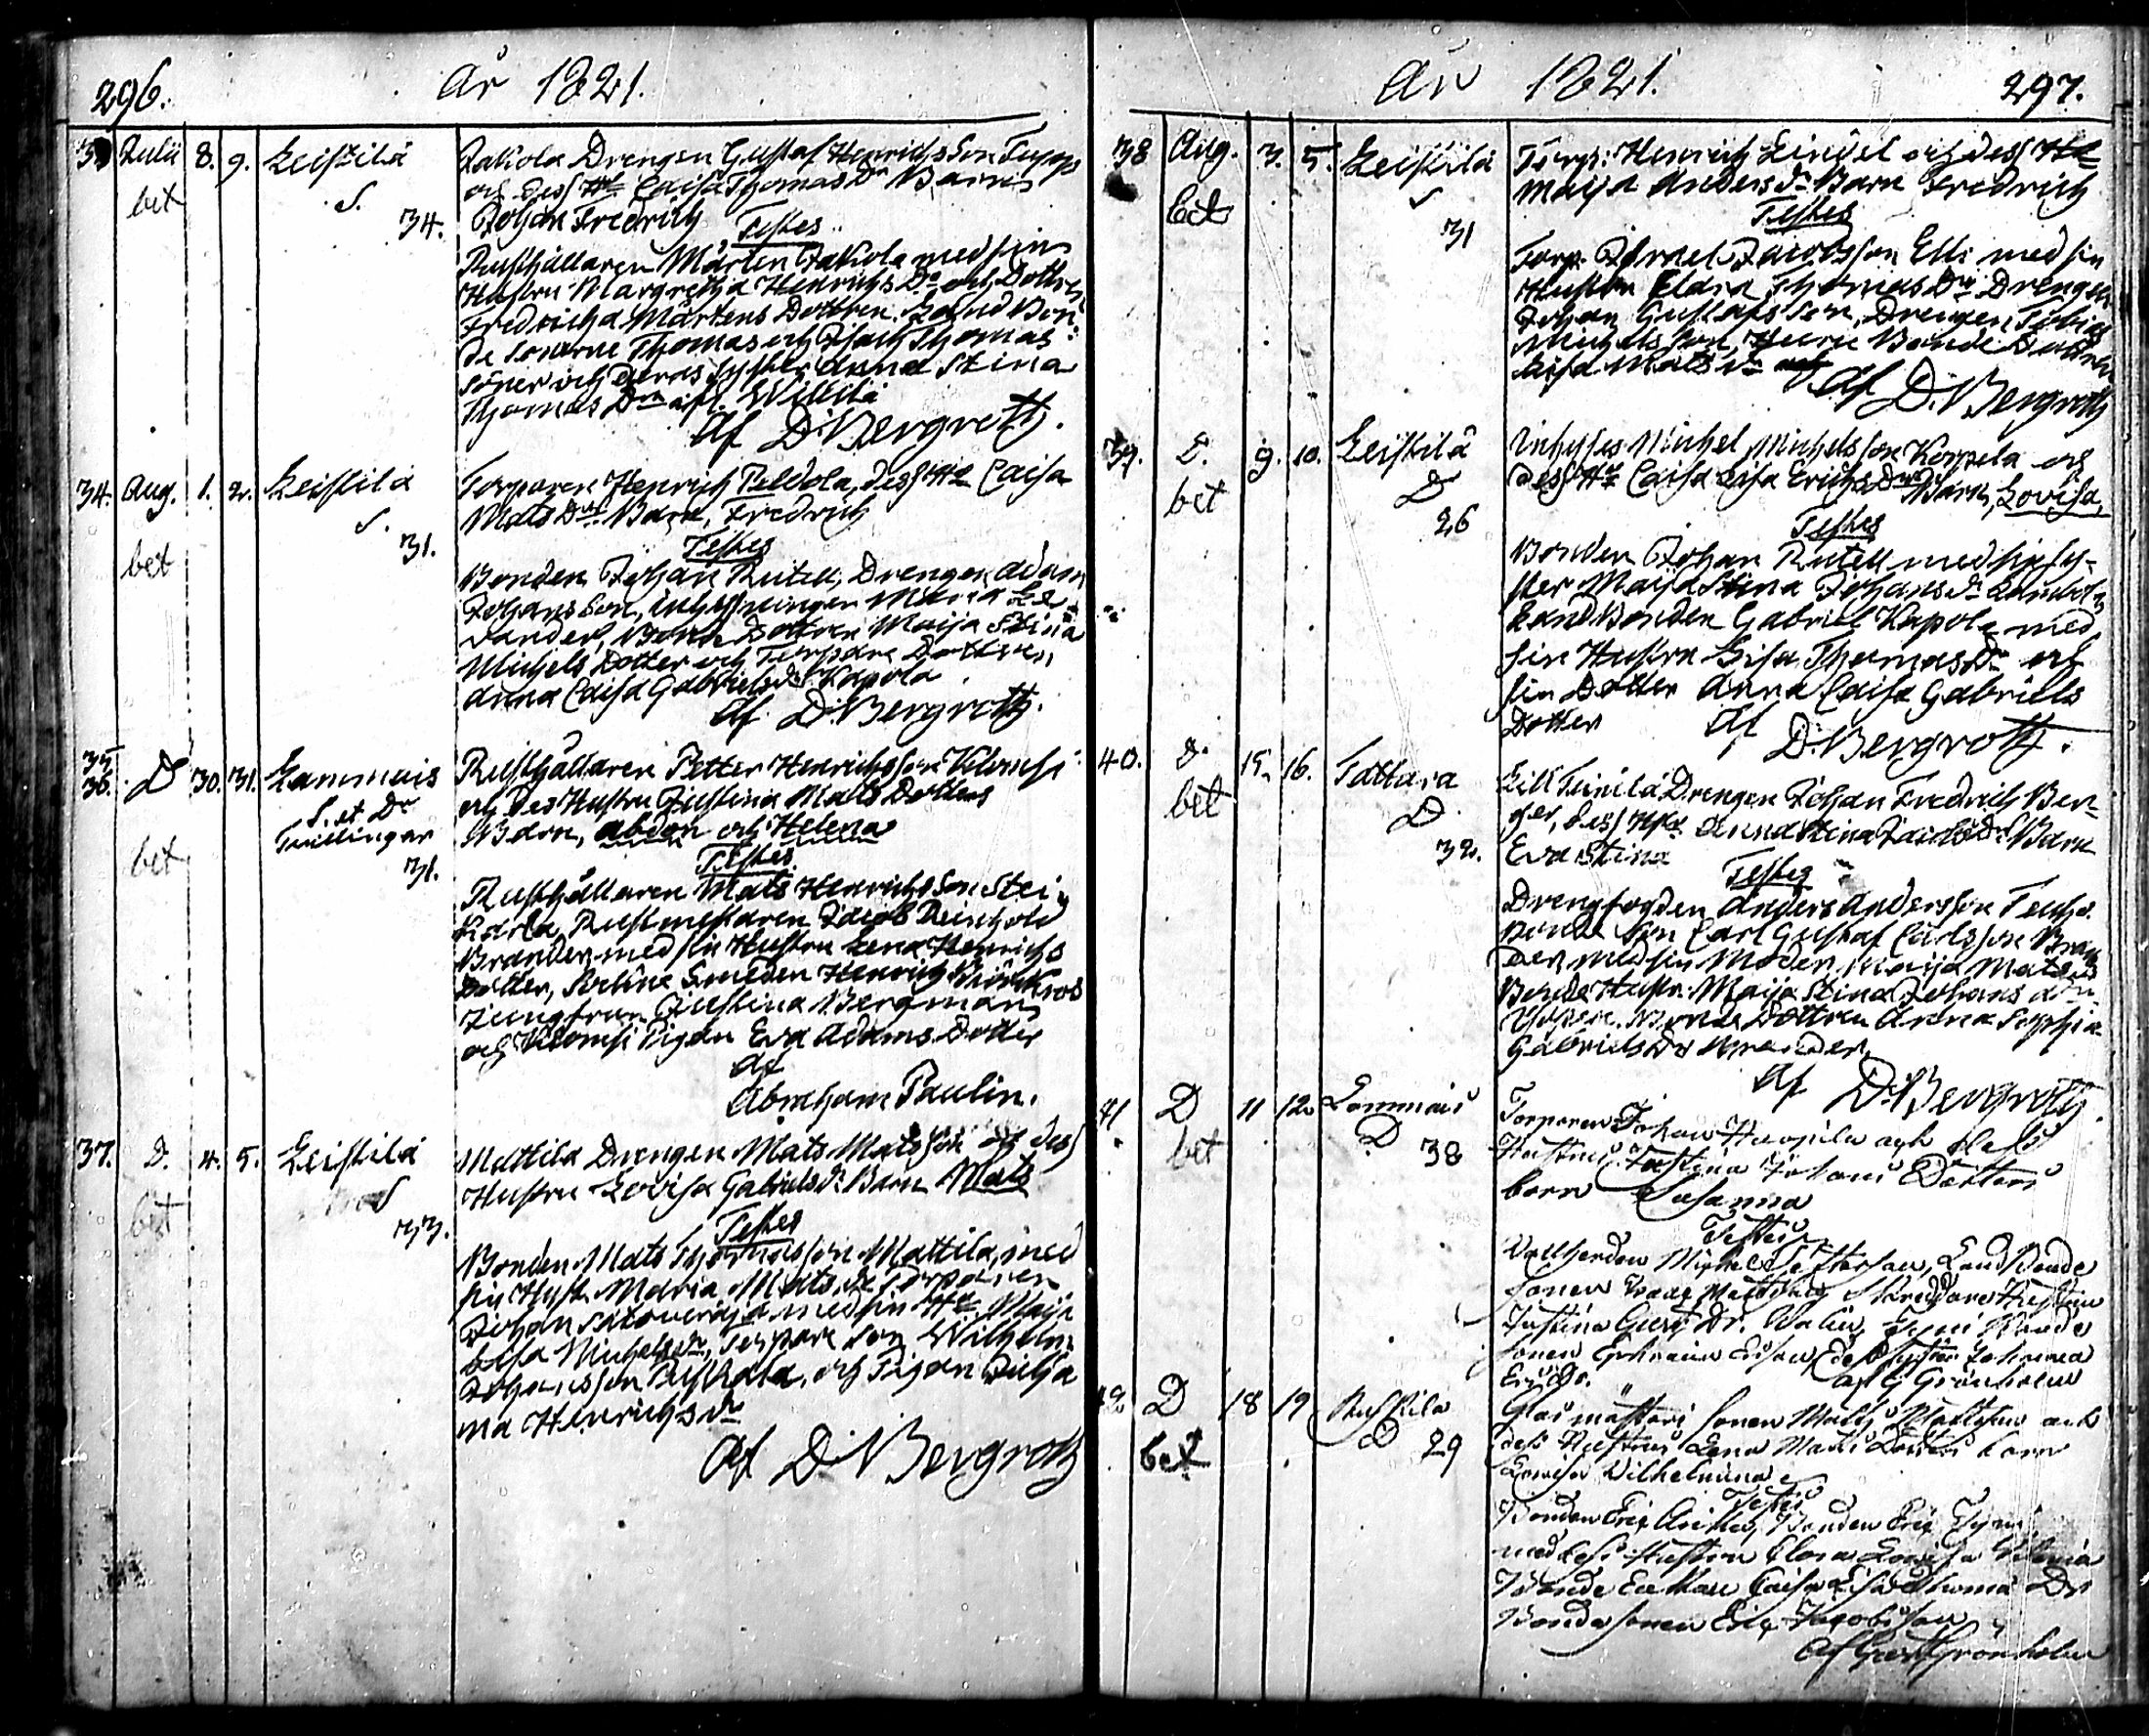 296.
år 1821.
33 Julii 8. 9. Leistilä Jakola Drengen Gustaf Henrichs Son
bet S. och dess Hu Caisa Thomas Dr Barn
34. Johan Fredrich
Testes
Rusthållaren Mårten Jakola med sin
Hustru Margretha Henrichs Dr och Dottren
Fredricha Mårtens Dottren. Land Bon-
de Sönerne Thomas och Isach Thomas
Söner och deras syster Anna Stina
Thomas Dr
af D. Bergroth.
34. Aug. 1. 2. Leistilä Torparen Henrich Peldola, dess Hu Caisa
S. Mats Drs Barn, Fredrich
bet 31. Testes
Bonden Johan Rutell, Drengen Adam
Johans Son, inhysningen Maria Le-
vander, Bonde Dottren Maija Stina
Michels Dotter och Torpare Dottren
Anna Caisa Gabrielsdr Kapola
af D. Bergroth.
35
36. D 30. 31. Lammais Rusthållaren Petter Henrichsson Klomsi
S. et Dr och des Hustru Justina Mats Dotters
Tvillingar Barn, Abdon och Helena
bet 31. Testes
Rusthållaren Mats Henrichs Son
Rustmästaren Jacob Reinhold
Brander med sin Hustru Lena Henrichs
Dotter, Smeden Henrich Björkroos
Jungfrun Justina Bergman
och Klomsi Pigan Eva Adams Dotter
af
Abraham Paulin.
37. D. 4. 5. Leistilä Mattila Drengen Mats Matsson och dess
S Hustru Lovisa Gabriels Dr Barn Mats
bet 33. Testes
Bonden Mats Thomasson Mattila, med
sin Hust. Maria Mats dr Torparen
Johan Satoveräjä med sin Hu Maija
Lisa Michelsdr, Torpare Son Wilhelm
Johansson och Pigan Julja
na Henrichs dr
af D. Bergroth
år 1821.
297.
38 Aug. 3. 5. Leistilä Torp: Henrich Lindel och dess Hu
S Maija Anders dr Barn Fredrich
bet 31 Testes
Torp. Israel Jacobsson Elli med sin
Hustru Clara Thomas Dr Drengen
Johan Gustafs Son, Drengen Tobias
Michels Son, Bonde Dottren
Caisa Mats dr
af D. Bergroth
39. D. 9. 10. Leistilä Inhyses Michel Michelsson Korpela och
D dess Hu Caisa Lisa Erichs Drs Barn, Lovisa,
bet 26 Testes
Bonden Johan Rutell med sin sy-
ster Maija Stina Johans dr
Landbonden Gabriel Kapola med
sin Hustru Lisa Thomas Dr och
sin Dotter Anna Caisa Gabriels
Dotter af
D. Bergroth.
40. D. 15. 16. Tattara Drengen Johan Fredrich Ber-
bet D ger, dess Hu Anna Stina Jacobs Drs Barn
32. Eva Stina
Testes
Drengfogden Anders Andersson
Bonde Son Carl Gustaf Carlsson Bran
der med sin Moder Maija Mats dr
Bonde Hustr. Maija Stina Johans dr
Bonde Dottren Anna Sophia
Gabriels Dr Brander
af D. Bergroth.
41 D 11 12 Lammais Torparen Johan Haapila och dess
D Hustrus Justina Johans Dotters
bet 38 barn Susanna
Testes
Vallherden Michel Land Bonde
sonen Isaac Mattson Skreddare Hustrun
Justina Dr. Walin, Bonde
sonen Ephraim Johanna
Ericsdr. af G Grönholm
42 D 18 19 Glasmästare sonen Matts Mattsson och
D dess Hustrus Lena Matts Dotters barn
bet 29 Lovisa Wilhelmina
Testes
Bonden Eric Bonden Eric
med dess Hustru Clara Lovisa
Bonde Caisa Lisa Dr
Bonde sonen Eric Jacobsson
af Gust Grönholm